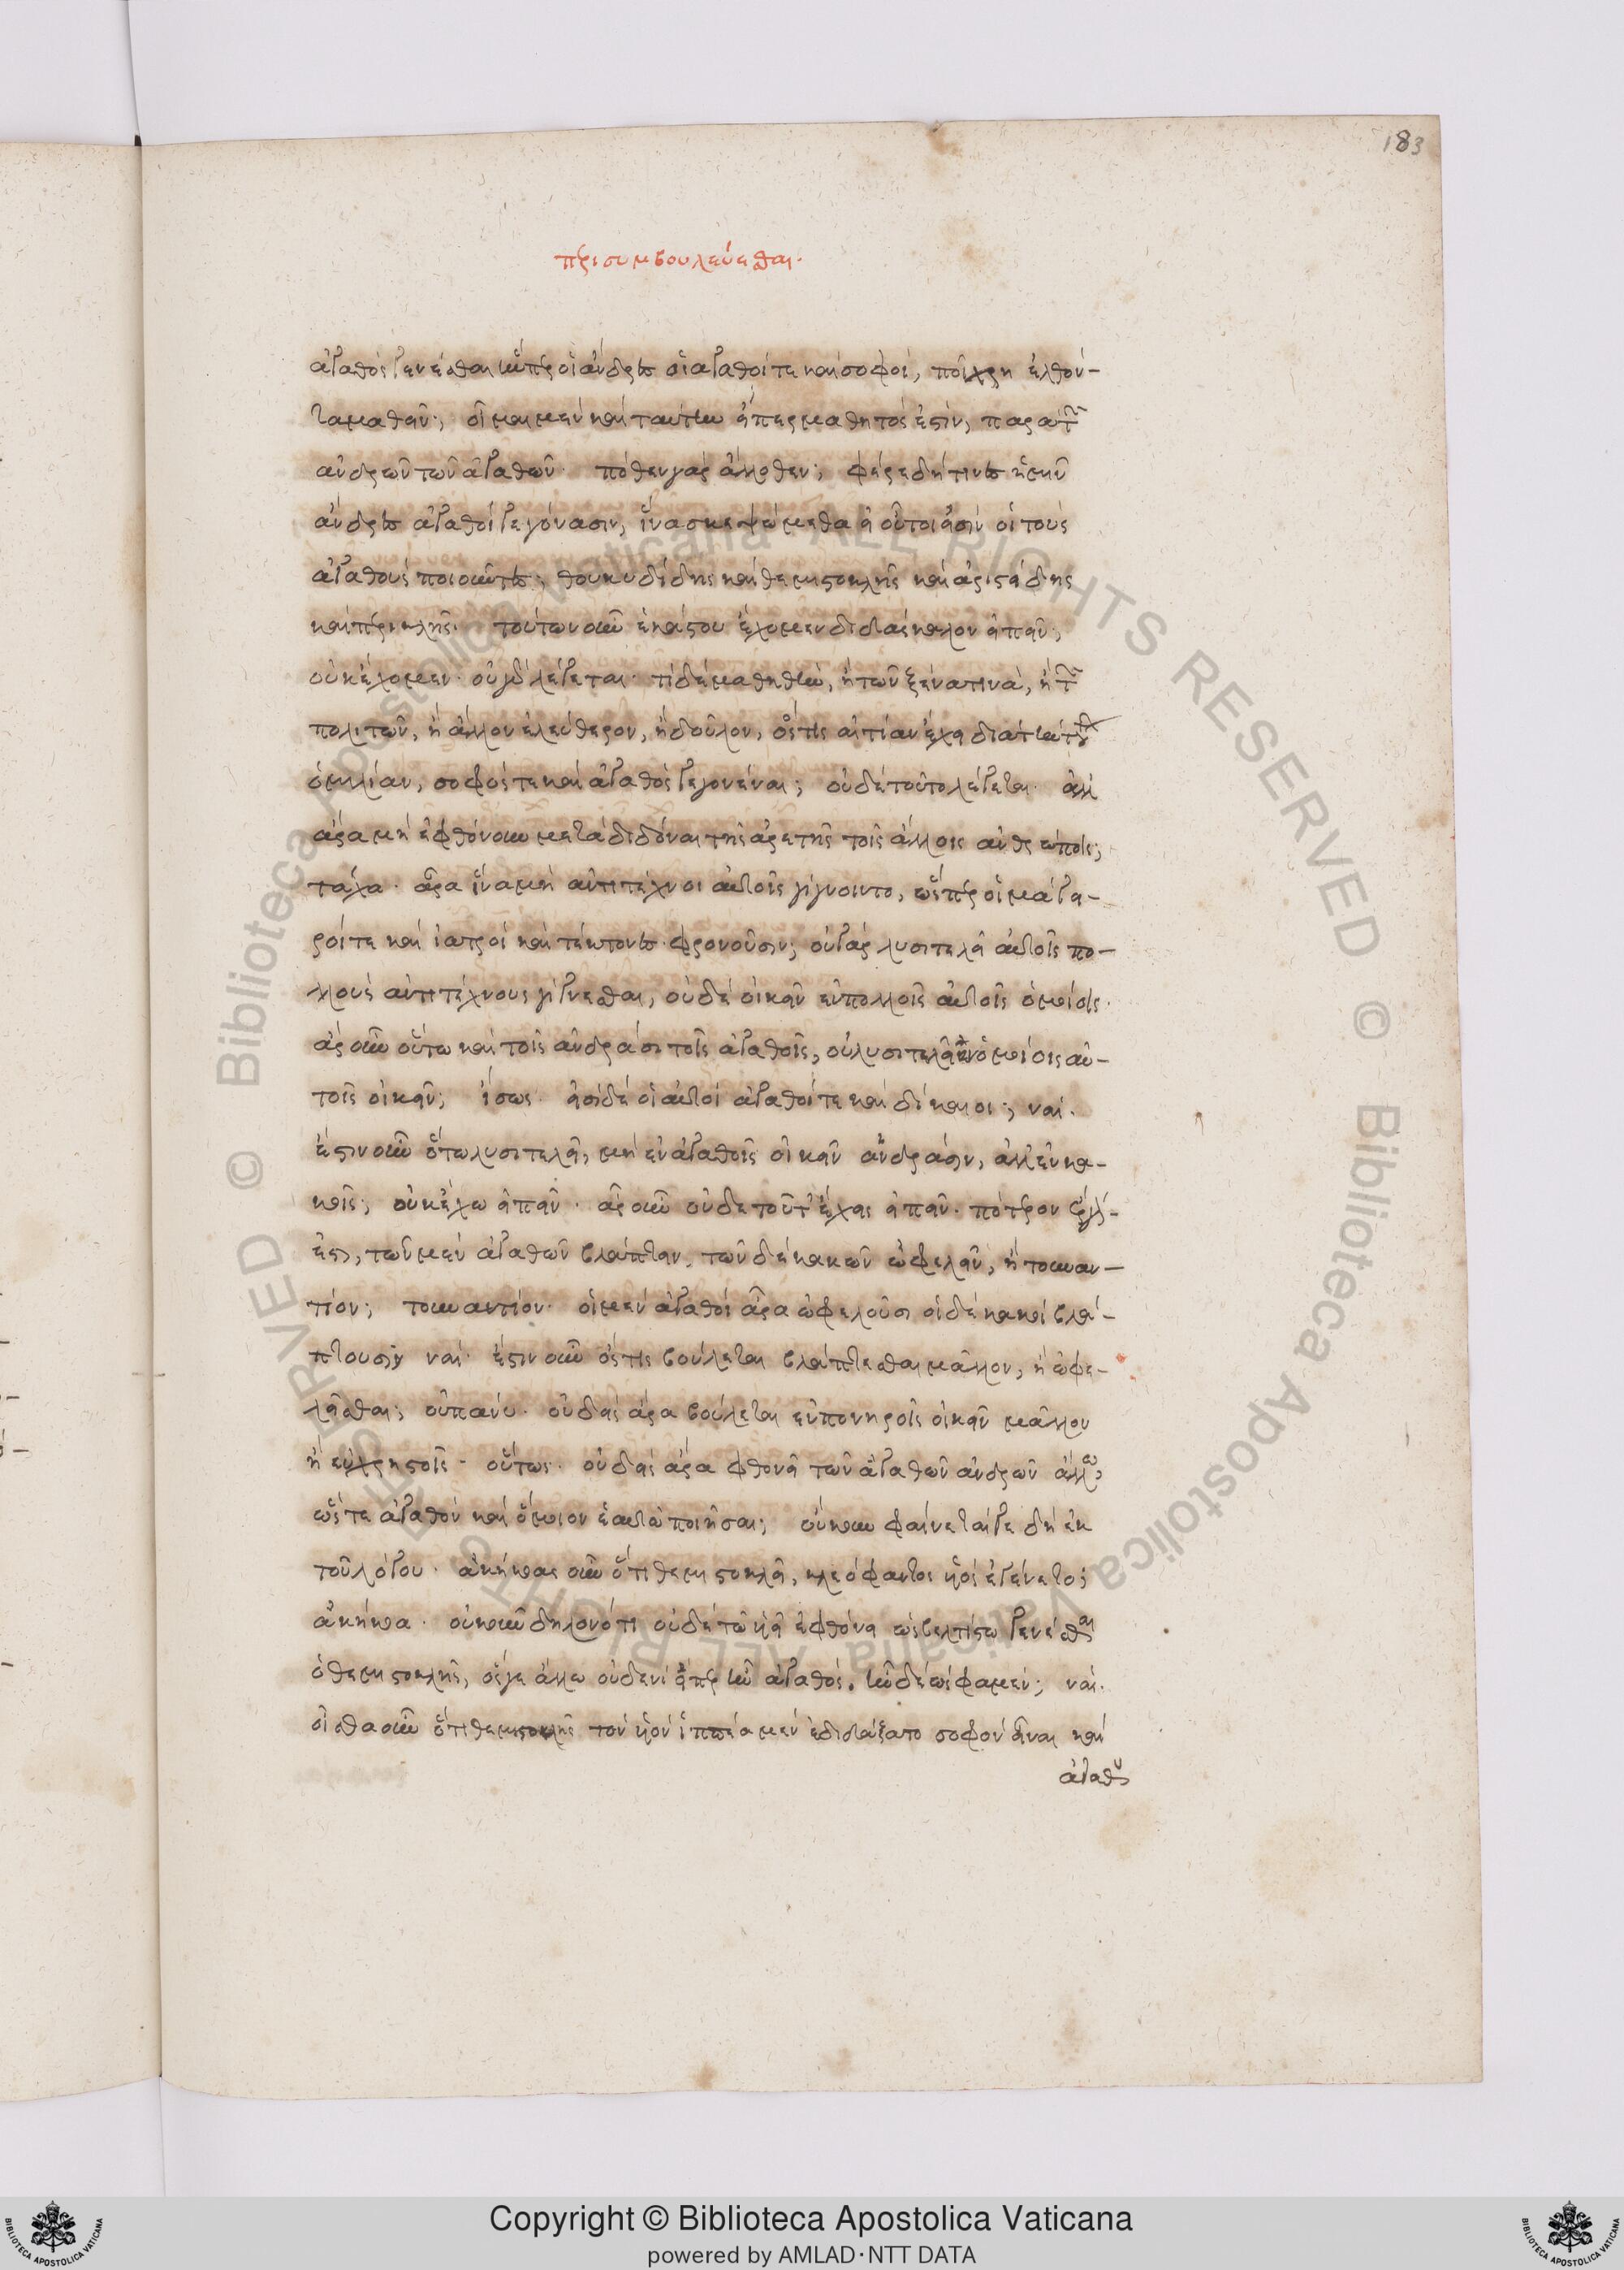 183
περὶ συμβουλεύεσθαι.
ἀγαθὸς γενέσθαι ὥσπερ οἱ ἄνδρες οἱ ἀγαθοί τε καὶ σοφοί, ποῖ χρὴ ἐλθόν-
τα μαθεῖν; οἶμαι μὲν καὶ ταύτην εἴπερ μαθητός ἐστιν, παρὰ τῶν
ἀνδρῶν τῶν ἀγαθῶν. πόθεν γὰρ ἄλλοθεν; φέρε δὴ τίνες ἡμῖν
ἄνδρες ἀγαθοὶ γεγόνασιν, ἵνα σκεψώμεθα εἰ οὗτοι εἰσὶν οἱ τοὺς
ἀγαθοὺς ποιοῦντες; θουκυδίδης καὶ θεμιστοκλῆς καὶ ἀριστείδης
καὶ περικλῆς. τούτων οὖν ἑκάστου ἔχομεν διδάσκαλον εἰπεῖν;
οὐκ ἔχομεν. οὐ γὰρ λέγεται. τί δὲ μαθητὴν, ἢ τῶν ξένων τινὰ, ἢ τῶν
πολιτῶν, ἢ ἄλλον ἐλεύθερον, ἢ δοῦλον, ὅστις αἰτίαν ἔχει διὰ τὴν τούτων
ὁμιλίαν, σοφός τε καὶ ἀγαθὸς γεγονέναι; οὐδὲ τοῦτο λέγεται. ἀλλ
ἆρα μὴ ἐφθόνουν μεταδιδόναι τῆς ἀρετῆς τοῖς ἄλλοις ἀνθρώποις;
τάχα. ἆρα ἵνα μὴ ἀντιτέχνοι αὐτοῖς γίγνοιντο, ὥσπερ οἱ μάγει-
ροί τε καὶ ἰατροὶ καὶ τέκτονες φθονοῦσιν; οὐ γὰρ λυσιτελεῖ αὐτοῖς πο-
λλοὺς ἀντιτέχνους γίγνεσθαι, οὐδὲ οἰκεῖν ἐν πολλοῖς αὐτοῖς ὁμοίοις.
ἆρ οὖν οὕτω καὶ τοῖς ἀνδράσι τοῖς ἀγαθοῖς, οὐ λυσιτελεῖ ἐν ὁμοίοις αὐ-
τοῖς οἰκεῖν; ἴσως. εἰσὶ δὲ οἱ αὐτοὶ ἀγαθοί τε καὶ δίκαιοι; ναί.
ἔστιν οὖν ὅτω λυσιτελεῖ, μὴ ἐν ἀγαθοῖς οἰκεῖν ἀνδράσιν, ἀλλ ἐν κα-
κοῖς; οὐκ ἔχω εἰπεῖν. ἆρ οὖν οὐδὲ τοῦτ ἔχεις εἰπεῖν. πότερον ἔργόν
ἐστι, τῶν μὲν ἀγαθῶν βλάπτειν, τῶν δὲ κακῶν ὠφελεῖν, ἢ τοὐναν-
τίον; τοὐναντίον. οἱ μὲν ἀγαθοὶ ἄρα ὠφελοῦσι οἱ δὲ κακοὶ βλά-
πτουσιν ναί. ἔστιν οὖν ὅστις βούλεται βλάπτεσθαι μᾶλλον, ἢ ὠφε-
λεῖσθαι; οὐ πάνυ. οὐδεὶς ἄρα βούλεται ἐν πονηροῖς οἰκεῖν μᾶλλον
ἢ ἐν χρηστοῖς. οὕτως. οὐδεὶς ἄρα φθονεῖ τῶν ἀγαθῶν ἀνδρῶν ἄλλω,
ὥστε ἀγαθὸν καὶ ὅμοιον ἑαυτῷ ποιῆσαι; οὔκουν φαίνεταί γε δὴ ἐκ
τοῦ λόγου. ἀκήκοας οὖν ὅτι θεμιστοκλεῖ, κλεόφαντος ὑὸς ἐγένετο;
ἀκήκοα. οὐκοῦν δῆλον ὅτι οὐδὲ τῶ ὑεῖ ἐφθόνει ὡς βελτίστω γενέσθαι
ὁ θεμιστοκλῆς, ὅς γε ἄλλω οὐδενὶ εἴπερ ἦν ἀγαθός. ἦν δέ ὥς φαμεν; ναί.
οἶσθα οὖν ὅτι θεμιστοκλῆς τὸν ὑὸν ἱππέα μὲν ἐδιδάξατο σοφὸν εἶναι καὶ
ἀγαθὸν
Copyright © Biblioteca Apostolica Vaticana
powered by AMLAD·NTT DATA